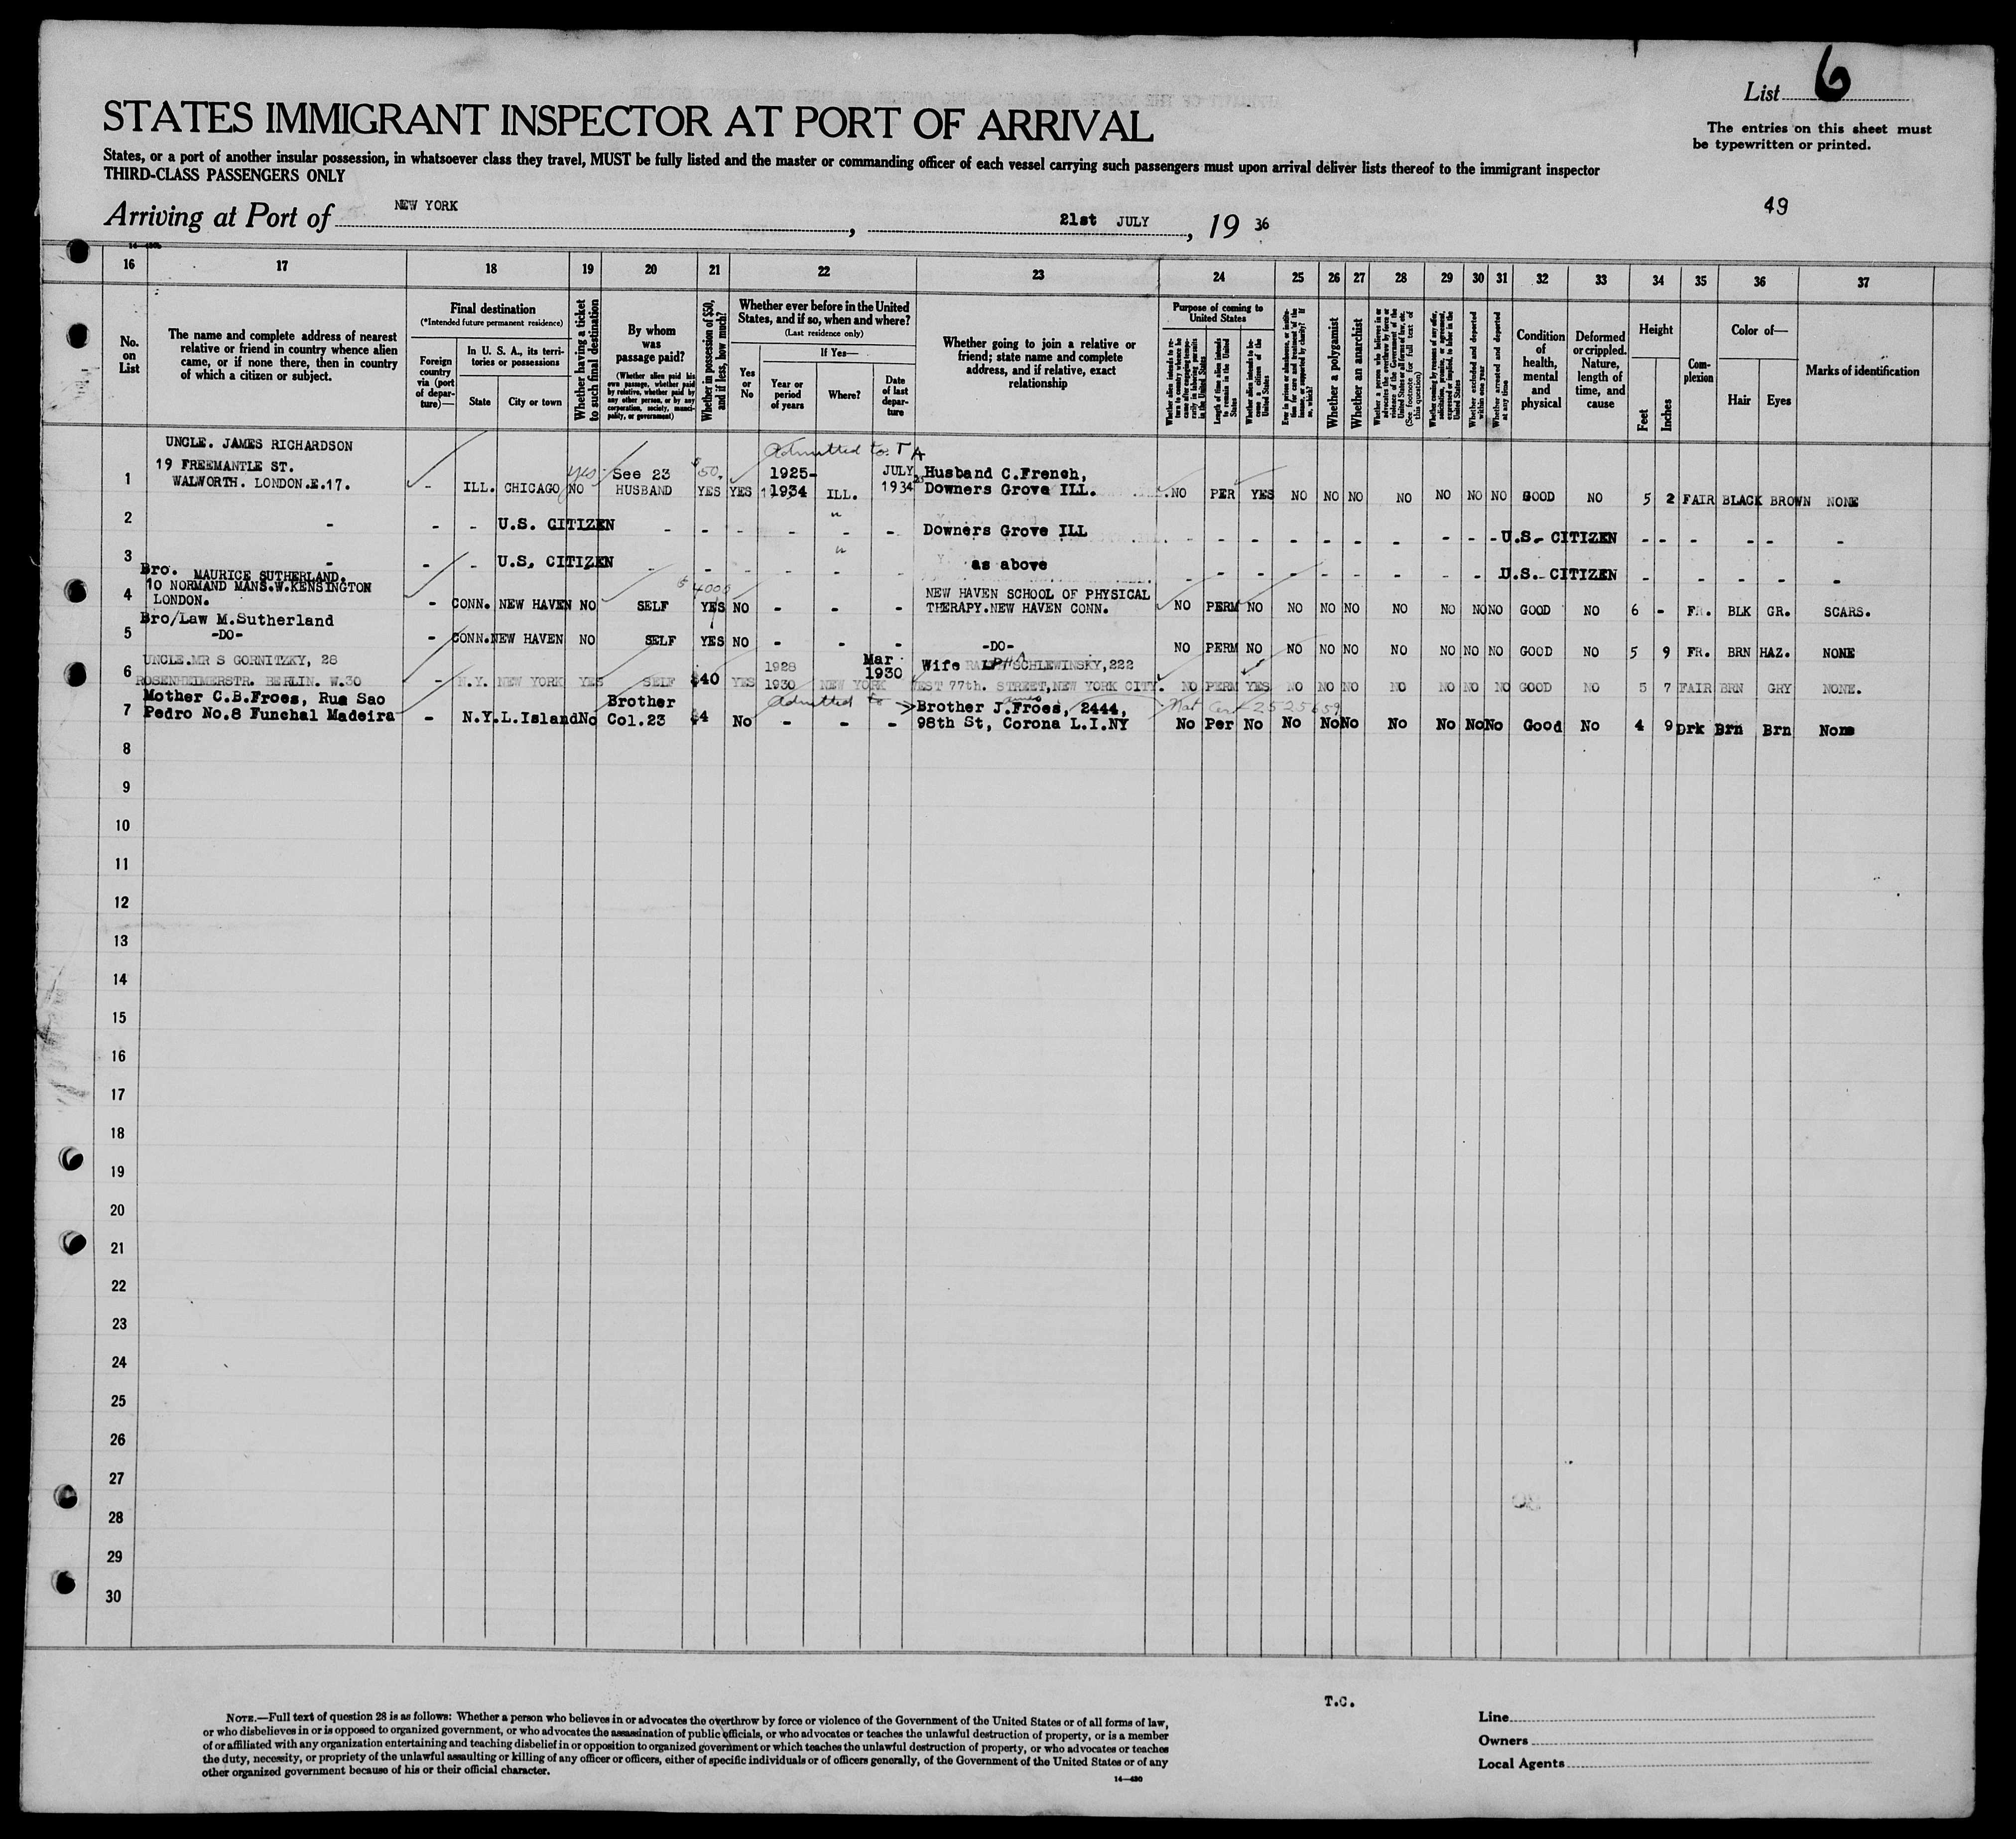 List 6
STATES IMMIGRANT INSPECTOR AT PORT OF ARRIVAL
The entries on this sheet must
be typewritten or printed.
States, or a port of another insular possession, in whatsoever class they travel, MUST be fully listed and the master or commanding officer of each vessel carrying such passengers must upon arrival deliver lists thereof to the immigrant inspector
THIRD-CLASS PASSENGERS ONLY
Arriving at Port of NEW YORK, 21st JULY, 19 36
49
16 17 18 19 20 21 22 23 24 25 26 27 28 29 30 31 32 33 34 35 36 37
No. on List
The name and complete address of nearest
relative or friend in country whence alien
came, or if none there, then in country
of which a citizen or subject.
Final destination
(*Intended future permanent residence)
Foreign country via (port of departure)—
In U. S. A., its territories or possessions
State
City or town
Whether having a ticket to such final destination
By whom was passage paid?
(Whether alien paid his own passage, whether paid by relative, whether paid by any other person, or by any corporation, society, municipality, or government)
Whether in possession of $50, and if less, how much?
Whether ever before in the United States, and if so, when and where?
(Last residence only)
Yes or No
If Yes—
Year or period of years
Where?
Date of last departure
Whether going to join a relative or
friend; state name and complete
address, and if relative, exact
relationship
Purpose of coming to United States
Length of time alien intends to remain in the United States
Whether alien intends to become a citizen of the United States
Whether a polygamist
Whether an anarchist
Whether excluded and deported within one year
Whether arrested and deported at any time
Condition of health, mental and physical
Deformed or crippled. Nature, length of time, and cause
Height
Feet
Inches
Complexion
Color of—
Hair
Eyes
Marks of identification
Admitted to
UNCLE. JAMES RICHARDSON
19 FREEMANTLE ST.
WALWORTH. LONDON.E.17.
1 - ILL. CHICAGO yes NO See 23 HUSBAND $50. YES YES 1925- 1934 ILL. JULY 1934 Husband C.French, Downers Grove ILL. NO PER YES NO NO NO NO NO NO NO GOOD NO 5 2 FAIR BLACK BROWN NONE
2 - - - U.S. CITIZEN - - - - - - Downers Grove ILL - - - - - - - - - - U.S. CITIZEN - - - - - -
3 - - - U.S. CITIZEN - - - - - - as above - - - - - - - - - U.S. CITIZEN - - - - - -
Bro. MAURICE SUTHERLAND.
10 NORMAND MANS.W.KENSINGTON
LONDON.
4 - CONN. NEW HAVEN NO SELF $4000 YES NO - - - NEW HAVEN SCHOOL OF PHYSICAL THERAPY.NEW HAVEN CONN. NO PERM NO NO NO NO NO NO NO NO GOOD NO 6 - FR. BLK GR. SCARS.
Bro/Law M.Sutherland
5 -DO- - CONN. NEW HAVEN NO SELF YES NO - - - -DO- NO PERM NO NO NO NO NO NO NO NO GOOD NO 5 9 FR. BRN HAZ. NONE
UNCLE.MR S GORNITZKY, 28
ROSENHEIMERSTR. BERLIN. W.30
6 - N.Y. NEW YORK YES SELF $40 YES 1928 1930 NEW YORK Mar 1930 Wife SCHLEWINSKY,222 WEST 77th. STREET,NEW YORK CITY. NO PERM YES NO NO NO NO NO NO NO GOOD NO 5 7 FAIR BRN GRY NONE.
Admitted to
Nat Cert 2525659
Mother C.B.Froes, Rua Sao
Pedro No.8 Funchal Madeira
7 - N.Y. L.Island No Brother Col.23 $4 No - - - Brother J.Froes, 2444, 98th St, Corona L.I.NY No Per No No No No No No No No Good No 4 9 Drk Brn Brn None
8
9
10
11
12
13
14
15
16
17
18
19
20
21
22
23
24
25
26
27
28
29
30
T.C.
NOTE.—Full text of question 28 is as follows: Whether a person who believes in or advocates the overthrow by force or violence of the Government of the United States or of all forms of law,
or who disbelieves in or is opposed to organized government, or who advocates the assassination of public officials, or who advocates or teaches the unlawful destruction of property, or is a member
of or affiliated with any organization entertaining and teaching disbelief in or opposition to organized government or which teaches the unlawful destruction of property, or who advocates or teaches
the duty, necessity, or propriety of the unlawful assaulting or killing of any officer or officers, either of specific individuals or of officers generally, of the Government of the United States or of any
other organized government because of his or their official character.
14—430
Line
Owners
Local Agents